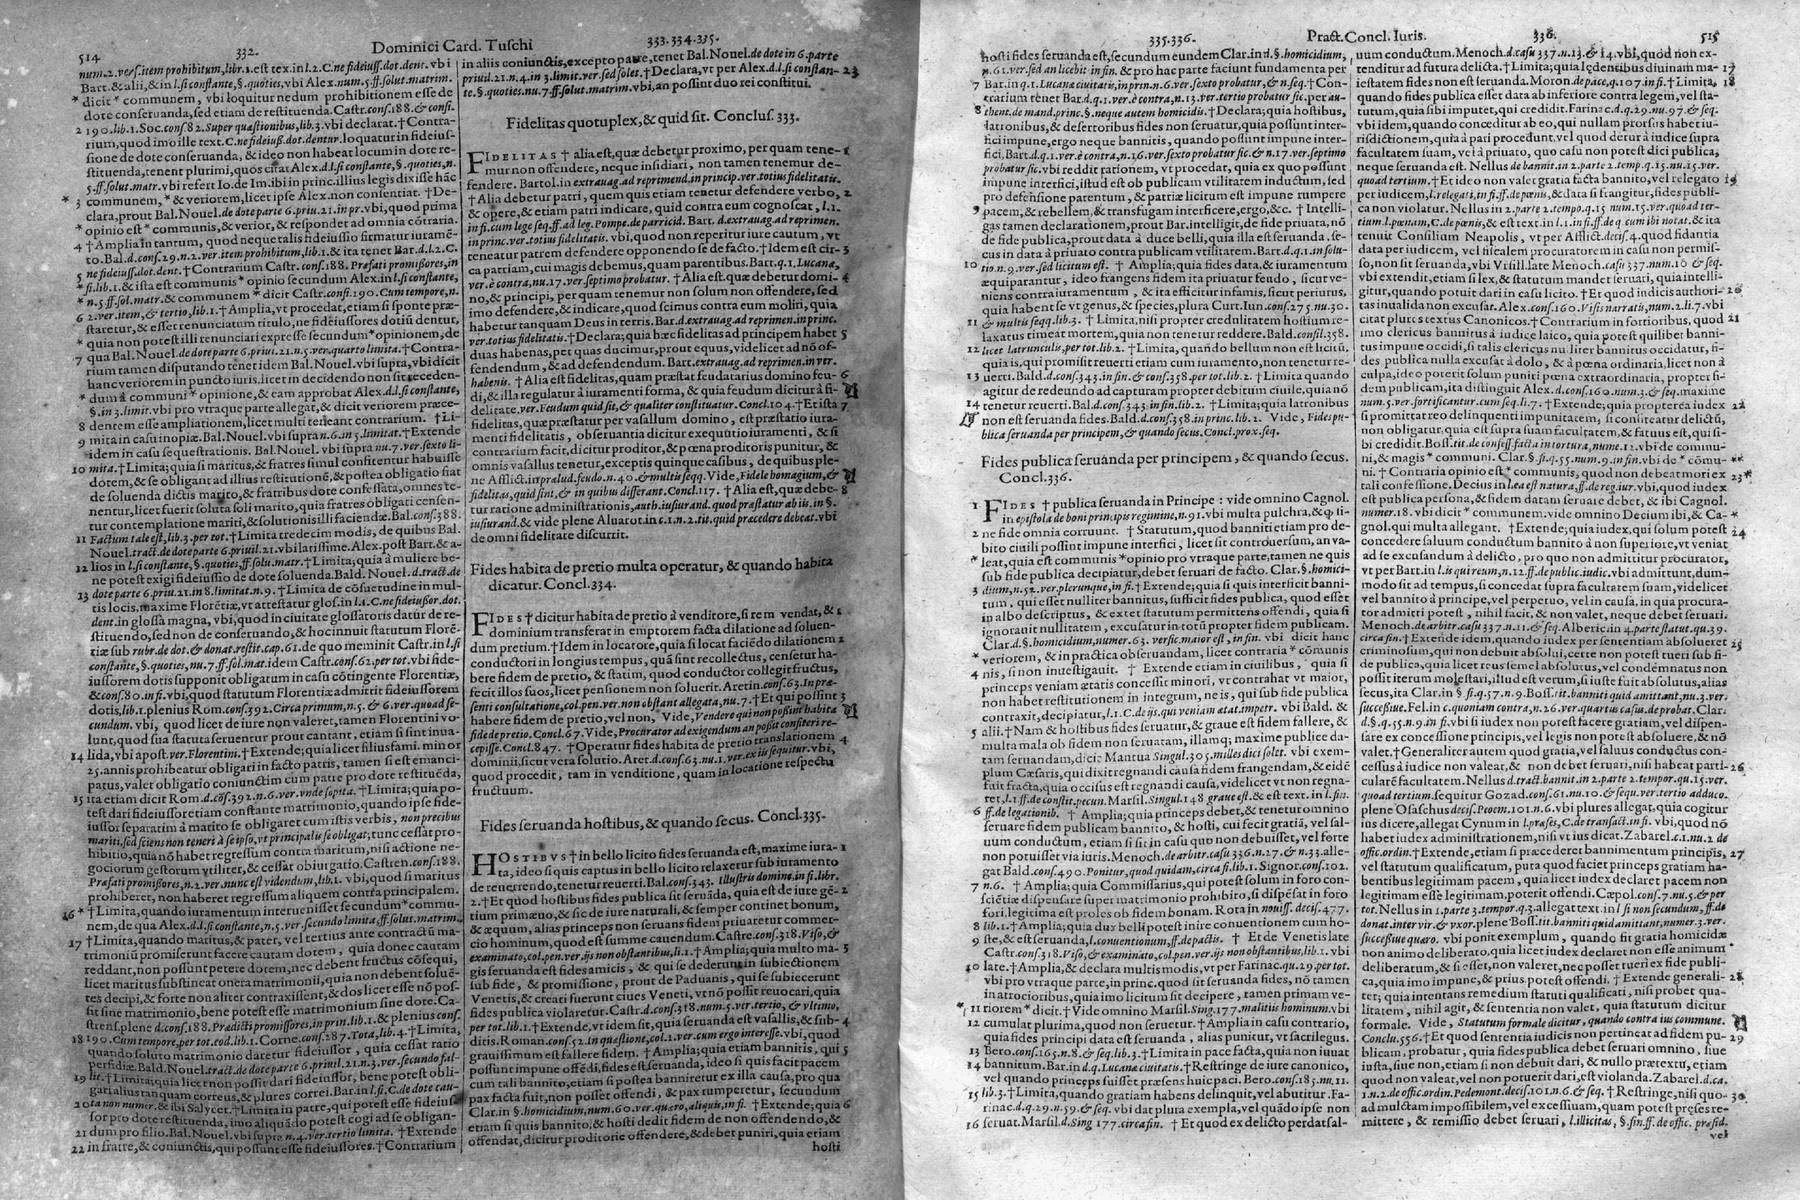 514 332. Dominici Card. Tuschi 333.334.335.
num.2.vers.item prohibitum,lib.1.est tex.in l.2.C.ne fideiuss.dot.dent.vbi
Bart.& alii,& in l.si constante,§.quoties,vbi Alex.num.5.ff.solut.matrim.
* dicit * communem, vbi loquitur nedum prohibitionem esse de
dote conseruanda, sed etiam de restituenda. Castr.cons.188.& consi.
2 190.lib.1.Soc.cons.82.Super quæstionibus,lib.3.vbi declarat.†Contra-
rium,quod imo ille text.C.ne fideiuss.dot.dentur.loquatur in fideius-
sione de dote conseruanda,& ideo non habeat locum in dote re-
stituenda,tenent plurimi,quos citat Alex.d.l.si constante,§.quoties,n.
5.ff.solut.matr.vbi refert Io.de Im.ibi in princ.illius legis dixisse hãc
* 3 communem,*& veriorem,licet ipse Alex.non consentiat. †De-
clara,prout Bal.Nouel.de dote parte 6.priu.21.in pr.vbi,quod prima
* opinio est* communis,& verior,& respondet ad omnia cõtraria.
4 †Amplia in tantum, quod neque talis fideiussio firmatur iuramẽ-
to.Bal.d.cons.29.n.2.ver.item prohibitum,lib.1.& ita tenet Bar.d.l.2.C.
5 ne fideiuss.dot.dent.†Contrarium Castr.cons.188. Præfati promissores,in
* fi.lib.1.& ista est communis* opinio secundum Alex.in l.si constante,
* n.5.ff.sol.matr.& communem* dicit Castr.consi.190.Cum tempore,n.
6 2.ver.item,& tertio,lib.1.†Amplia,vt procedat,etiam si sponte præ-
staretur,& esset renunciatum titulo,ne fideiussores dotiũ dentur,
* quia non potest illi renunciari expresse secundum*opinionem,de
7 qua Bal.Nouel.de dote parte 6.priui.21.n.5.ver.quarto limita.†Contra-
rium tamen disputando tenet idem Bal.Nouel.vbi supra,vbi dicit
hanc veriorem in puncto iuris,licet in decidendo non sit receden-
* dum à communi* opinione,& eam approbat Alex.d.l.si constante,
§.in 3.limit.vbi pro vtraque parte allegat,& dicit veriorem præce-
8 dentem esse ampliationem,licet multi teneant contrarium. †Li-
9 mita in casu inopiæ.Bal.Nouel.vbi supra n.6.in 5.limitat.†Extende
idem in casu sequestrationis. Bal.Nouel.vbi supra nu.7.ver.sexto li-
10 mita.†Limita;quia si maritus,& fratres simul confitentur habuisse
dotem,& se obligant ad illius restitutionẽ,& postea obligatio fiat
de soluenda dictis marito,& fratribus dote confessata,omnes te-
nentur,licet fuerit soluta soli marito,quia fratres obligari censen-
tur contemplatione mariti,& solutionis illi faciendæ.Bal.cons.388.
11 Factum tale est,lib.3.per tot.†Limita tredecim modis, de quibus Bal.
Nouel.tract.de dote parte 6.priuil.21.vbi latissime.Alex.post Bart.& a-
12 lios in l.si constante,§.quoties,ff.solu.matr.†Limita;quia à muliere be-
ne potest exigi fideiussio de dote soluenda.Bald. Nouel.d.tract.de
13 dote parte 6.priuil.21.in 8.limitat.n.9. †Limita de cõsuetudine in mul-
tis locis,maxime Florẽtiæ,vt attestatur glos.in l.1.C.ne fideiussor.dot.
dent.in glossa magna,vbi,quod in ciuitate glossatoris datur de re-
stituendo,sed non de conseruando,& hoc innuit statutum Florẽ-
tiæ sub rubr.de dot.& donat.restit.cap.61.de quo meminit Castr.in l.si
constante,§.quoties,nu.7.ff.sol.mat.idem Castr.cons.62.per tot.vbi fide-
iussorem dotis supponit obligatum in casu cõtingente Florentiæ,
& cons.80.in fi.vbi,quod statutum Florentiæ admittit fideiussorem
dotis,lib.1.plenius Rom.cons.392.Circa primum,n.5. & 6.ver.quoad se-
cundum. vbi, quod licet de iure non valeret,tamen Florentini vo-
lunt,quod sua statuta seruentur prout cantant, etiam si sint inua-
14 lida,vbi apost.ver.Florentini.†Extende;quia licet filiusfami. minor
25.annis prohibeatur obligari in facto patris, tamen si est emanci-
patus,valet obligatio coniunctim cum patre pro dote restituẽda,
15 ita etiam dicit Rom.d.cõs.392.n.6.ver.vnde sopita. †Limita;quia po-
test dari fideiussor etiam constante matrimonio,quando ipse fide-
iussor separatim à marito se obligaret cum istis verbis, non precibus
mariti,sed sciens non teneri à se ipso,vt principalis se obligat;tunc cessat pro-
hibitio,quia nõ habet regressum contra maritum,nisi actione ne-
gociorum gestorum vtiliter,& cessat obiurgatio.Castren.cons.188.
Præfati promissores,n.2.ver.nunc est videndum,lib.1. vbi,quod si maritus
prohiberet, non haberet regressum aliquem contra principalem.
16 * †Limita,quando iuramentum interuenisset secundum*commu-
nem,de qua Alex.d.l.si constante,n.5.ver.secundo limita,ff.solut.matrim.
17 †Limita,quando maritus,& pater, vel tertius ante contractũ ma-
trimoniũ promiserunt facere cautam dotem, quia donec cautam
reddant,non possunt petere dotem,nec debent fructus cõsequi,
licet maritus substineat onera matrimonii,quia non debent soluẽ-
tes decipi,& forte non aliter contraxissent,& dos licet esse nõ pos-
sit sine matrimonio,bene tamen potest esse matrimonium sine dote.Ca-
stren.plene d.cons.188.Prædicti promissores,in prin.lib.1.& plenius cons.
18 190.Cum tempore,per tot.cod.lib.1. Corne.cons.287.Tota,lib.4.†Limita,
quando soluto matrimonio daretur fideiussor, quia cessat ratio
perfidiæ.Bald.Nouel.tract.de dote parte 6.priuil.21.n.3.ver.secundo fal-
19 lit.†Limita;quia licet non possit dari fideiussor, bene potest obli-
gari alius tanquam correus,& plures correi.Bar.in l.si,C.de dote cau-
20 ta non numer.& ibi Salycet.†Limita in patre,qui potest esse fideius-
sor pro dote restituenda, imo aliquãdo potest cogi ad se obligan-
21 dum pro filio.Bal.Nouel.vbi supra n.4.ver.tertio limita. †Extende
22 in fratre,& coniunctis,qui possunt esse fideiussores.†Contrarium
in aliis coniunctis,excepto patre,tenet Bal.Nouel.de dote in 6.parte
priuil.21.n.4.in 3.limit.ver.sed solet.†Declara,vt per Alex.d.l.si constan- 23
te.§.quoties.nu.7.ff.solut.matrim.vbi,an possint duo rei constitui.
Fidelitas quotuplex,& quid sit. Conclus.333.
FIDELITAS † alia est,quæ debetur proximo,per quam tene- 1
mur non offendere, neque insidiari, non tamen tenemur de-
fendere. Bartol.in extrauag.ad reprimend.in princip.ver.totius fidelitatis.
†Alia debetur patri, quem quis etiam tenetur defendere verbo, 2
& opere,& etiam patri indicare, quid contra eum cognoscat, l.1.
in fi.cum lege seq.ff.ad leg.Pompe.de parricid. Bart. d.extrauag.ad reprimen.
in princ.ver.totius fidelitatis. vbi,quod non reperitur iure cautum, vt
teneatur patrem defendere opponendo se de facto.†Idem est cir- 3
ca patriam,cui magis debemus,quam parentibus.Bart.q.1.Lucanæ,
ver.è contra,nu.17.ver.septimo probatur. †Alia est,quæ debetur domi- 4
no,& principi, per quam tenemur non solum non offendere, sed
imo defendere,& indicare,quod scimus contra eum moliri, quia
habetur tanquam Deus in terris.Bar.d.extrauag.ad reprimen.in princ.
ver.totius fidelitatis.†Declara;quia hæc fidelitas ad principem habet 5
duas habenas,per quas ducimur,prout equus,videlicet ad nõ of-
fendendum,& ad defendendum. Bart.extrauag.ad reprimen.in ver.
habenis. †Alia est fidelitas,quam præstat feudatarius domino feu- 6
di,& illa regulatur à iuramenti forma,& quia feudum dicitur à fi-
delitate.ver.Feudum quid sit,& qualiter constituatur.Concl.104.†Et ista 7
fidelitas,quæ præstatur per vasallum domino, est præstatio iura-
menti fidelitatis, obseruantia dicitur exequutio iuramenti, & si
contrarium facit,dicitur proditor,& pœna proditoris punitur, &
omnis vasallus tenetur,exceptis quinque casibus, de quibus ple-
ne Afflict.in prælud.feudo.n.40.& multis seqq.Vide,Fidele homagium,&
fidelitas,quid sint,& in quibus differant.Concl.117. †Alia est,quæ debe- 8
tur ratione administrationis,auth.iusiurand.quod præstatur ab iis.in §.
iusiurand.& vide plene Aluarot.in c.1.n.2.tit.quid præcedere debeat.vbi
de omni fidelitate discurrit.
Fides habita de pretio multa operatur, & quando habita
dicatur. Concl.334.
FIDES†dicitur habita de pretio à venditore,si rem vendat,& 1
dominium transferat in emptorem facta dilatione ad soluen-
dum pretium.†Idem in locatore,quia si locat faciẽdo dilationem 2
conductori in longius tempus, quã sint recollectus, censetur ha-
bere fidem de pretio,& statim, quod conductor collegit fructus,
fecit illos suos,licet pensionem non soluerit. Aretin.cons.63.In præ-
senti consultatione,col.pen.ver.non obstant allegata,nu.7.†Et qui possint 3
habere fidem de pretio,vel non, Vide,Vendere qui non possint habita
fide de pretio.Concl.67.Vide,Procurator ad exigendum an possit confiteri re-
cepisse.Concl.847. †Operatur fides habita de pretio translationem 4
dominii,sicut vera solutio. Aret.d.cons.63.nu.1.ver.ex iis sequitur.vbi,
quod procedit, tam in venditione, quam in locatione respectu
fructuum.
Fides seruanda hostibus,& quando secus. Concl.335.
HOSTIBVS†in bello licito fides seruanda est,maxime iura- 1
ta,ideo si quis captus in bello licito relaxetur sub iuramento
de reuertendo,tenetur reuerti.Bal.cons.343. Illustris domine,in fi.libr.
2.†Et quod hostibus fides publica sit seruãda,quia est de iure gẽ- 2
tium primæuo,& sic de iure naturali,& semper continet bonum,
& æquum,alias princeps non seruans fidem priuaretur commer-
cio hominum,quod est summe cauendum. Castre.cons.318.Viso,&
examinato,col.pen.ver.iis non obstantibus,li.1.†Amplia;quia multo ma- 3
gis seruanda est fides amicis, & qui se dederunt in subiectionem
sub fide,& promissione, prout de Paduanis,qui se subiecerunt
Venetis,& creati fuerunt ciues Veneti, vt nõ possit reuocari,quia
fides publica violaretur. Castr.d.cons.318.num.5.ver.tertio,& vltimo,
per tot.lib.1.†Extende,vt idem sit,quia seruanda est vasallis,& sub- 4
ditis.Roman.cons.52.In quæstione,col.2.ver.cum ergo interesse.vbi,quod
grauissimum est fallere fidem. †Amplia;quia etiam bannitis, qui 5
possunt impune offẽdi,fides est seruanda,ideo si quis facit pacem
cum tali bannito,etiam si postea banniretur ex illa causa,pro qua
pax facta fuit,non posset offendi, & pax rumperetur, secundum
Clar.in §.homicidium,num.60.ver.quæro,aliquis,in fi. †Extende;quia 6
etiam si quis bannito,& hosti dedit fidem de non offendendo,&
offendat,dicitur proditorie offendere,&debet puniri,quia etiam
hosti
335.336. Pract.Concl.Iuris. 336. 515
hosti fides seruanda est,secundum eundem Clar.in d.§.homicidium,
n.61.ver.sed an licebit in fin.& pro hac parte faciunt fundamenta per
7 Bar.in q.1.Lucanæ ciuitatis,in prin.n.6.ver.sexto probatur,& n.seq.†Con-
trarium tenet Bar.d.q.1.ver.è contra,n.13.ver.tertio probatur sic.per au-
8 thent.de mand.princ.§.neque autem homicidis.†Declara;quia hostibus,
latronibus,& desertoribus fides non seruatur,quia possunt inter-
fici impune,ergo neque bannitis, quando possunt impune inter-
fici,Bart.d.q.1.ver.è contra,n.16.ver.sexto probatur sic.& n.17.ver.septimo
probatur sic.vbi reddit rationem, vt procedat, quia ex quo possunt
impune interfici,istud est ob publicam vtilitatem inductum,sed
pro defensione patentum,& patriæ licitum est impune rumpere
9 pacem,& rebellem,& transfugam interficere,ergo,&c. †Intelli-
gas tamen declarationem,prout Bar.intelligit, de fide priuata,nõ
de fide publica,prout data à duce belli,quia illa est seruanda, se-
cus in data à priuato contra publicam vtilitatem. Bart.d.q.1.in solu-
10 tio.n.9.ver.sed licitum est. † Amplia;quia fides data,& iuramentum
æquiparantur, ideo frangens fidem ita priuatur feudo, sicut ve-
niens contra iuramentum, & ita efficitur infamis,sicut periurus,
quia habent se vt genus,& species,plura Curt.Iun.cons.275.nu.30.
11 & multis seqq.lib.3. †Limita,nisi propter credulitatem hostium re-
laxatus timeat mortem,quia non tenetur reddere. Bald. consil.358.
12 licet latrunculis,per tot.lib.2. †Limita, quando bellum non est licitũ,
quia is,qui promisit reuerti etiam cum iuramento,non tenetur re-
13 uerti.Bald.d.cons.343.in fin.& cons.358.per tot.lib.2. †Limita quando
agitur de redeundo ad capturam propter debitum ciuile,quia nõ
14 tenetur reuerti.Bal.d.cons.343.in fin.lib.2. †Limita;quia latronibus
non est seruanda fides.Bald.d.cons.358.in princ.lib.2. Vide,Fides pu-
blica seruanda per principem,& quando secus.Concl.prox.seq.
Fides publica seruanda per principem, & quando secus.
Concl.336.
1 FIDES † publica seruanda in Principe : vide omnino Cagnol.
in epistola de boni principis regimine,n.91.vbi multa pulchra,& q̃ ti-
2 ne fide omnia corruunt. † Statutum,quod banniti etiam pro de-
bito ciuili possint impune interfici, licet sit controuersum, an va-
* leat,quia est communis *opinio pro vtraque parte,tamen ne quis
sub fide publica decipiatur,debet seruari de facto. Clar.§.homici-
3 dium,n.52.ver.plerunque,in fi.†Extende;quia si quis interficit banni-
tum, qui esset nulliter bannitus, sufficit fides publica, quod esset
in albo descriptus, & extet statutum permittens offendi, quia si
ignorauit nullitatem, excusatur in totũ propter fidem publicam.
Clar.d.§.homicidium,numer.63. versic.maior est,in fin. vbi dicit hanc
* veriorem,& in practica obseruandam, licet contraria* cõmunis
4 nis, si non inuestigauit. † Extende etiam in ciuilibus, quia si
princeps veniam ætatis concessit minori, vt contrahat vt maior,
non habet restitutionem in integrum, ne is,qui sub fide publica
contraxit,decipiatur,l.1.C.de iis,qui veniam ætat.impetr. vbi Bald. &
5 alii.†Nam & hostibus fides seruatur,& graue est fidem fallere,&
multa mala ob fidem non seruatam, illamq; maxime publice da-
tam seruandam,dicit Mantua Singul.305.milles dici solet. vbi exem-
plum Cæsaris,qui dixit regnandi causa fidem frangendam,& eidẽ
fuit fracta,quia occisus est regnandi causa,videlicet vt non regna-
ret,l.1.ff.de constit.pecun.Marsil.Singul.148 graue est.& est text.in l.fin.
6 ff.de legationib. † Amplia; quia princeps debet,& tenetur omnino
seruare fidem publicam bannito,& hosti,cui fecit gratiã,vel sal-
uum conductum, etiam si sit in casu quo non debuisset,vel forte
non potuisset via iuris.Menoch.de arbitr.casu 336.n.27.& n.33.alle-
gat Bald.cons.490.Ponitur,quod quidam,circa fi.lib.1.Signor.cons.102.
7 n.6. † Amplia;quia Commissarius,qui potest solum in foro con-
sciẽtiæ dispensare super matrimonio prohibito,si dispẽsat in foro
fori,legitima est proles ob fidem bonam.Rota in nouiss.decis.477.
8 lib.1.†Amplia;quia dux belli potest inire conuentionem cum ho-
9 ste,& est seruanda,l.conuentionum,ff.de pactis. † Et de Venetis late
Castr.cons.318.Viso,& examinato,col.pen.ver.iis non obstantibus,lib.1.vbi
10 late.†Amplia,& declara multis modis,vt per Farinac.qu.29.per tot.
vbi pro vtraque parte,in princ.quod sit seruanda fides,nõ tamen
in atrocioribus,quia imo licitum sit decipere, tamen primam ve-
* 11 riorem* dicit.†Vide omnino Marsil.Sing.177.malitiis hominum.vbi
12 cumulat plurima,quod non seruetur.†Amplia in casu contrario,
quia fides principi data est seruanda, alias punitur, vt sacrilegus.
13 Bero.cons.165.n.8.& seq.lib.3.†Limita in pace facta,quia non iuuat
14 bannitum.Bar.in d.q.Lucanæ ciuitatis.†Restringe de iure canonico,
vel quando princeps fuisset præsens huic paci. Bero.cons.185.nu.11.
15 lib.3.†Limita,quando gratiam habens delinquit,vel abutitur.Fa-
rinac.d.q.29.n.59.& seq. vbi dat plura exempla,vel quãdo ipse non
16 seruat.Marsil.d.Sing 177.circa fin. †Et quod ex delicto perdat sal-
uum conductum.Menoch.d.casu 337.n.13.& 14.vbi,quod non ex-
tenditur ad futura delicta.†Limita;quia lædentibus diuinam ma- 17
iestatem fides non est seruanda.Moron.de pace,q.107.in fi.†Limita, 18
quando fides publica esset data ab inferiore contra legem,vel sta-
tutum,quia sibi imputet,qui credidit.Farinac.d.q.29.n.97.& seq.
vbi idem,quando conceditur ab eo,qui nullam prorsus habet iu-
risdictionem,quia à pari procedunt,vel quod detur à iudice supra
facultatem suam,vel à priuato, quo casu non potest dici publica,
neque seruanda est. Nellus de bannit.in 2.parte 2.temp.q.15.nu.15.ver.
quoad tertium.†Et ideo non valet gratia facta bannito,vel relegato 19
per iudicem,l.relegati,in fi.ff.de pœnis,& data si frangitur,fides publi-
ca non violatur. Nellus in 2.parte 2.tempo.q.15 num.15.ver.quod ter-
tium.l.pœnam,C.de pœnis,& est text.in l.1.in fi.ff.de q cum ibi notat.& ita
tenuit Consilium Neapolis, vt per Afflict.decis.4.quod fidantia
data per iudicem, vel fiscalem procuratorem in casu non permis-
so,non sit seruanda,vbi Vrsill.late Menoch.casu 337.num.10 & seq.
vbi extendit,etiam si lex,& statutum mandet seruari, quia intelli-
gitur,quando potuit dari in casu licito.†Et quod iudicis authori- 20
tas inualida non excusat.Alex.cons.160.Visis narratis,num.2.li.7.vbi
citat plures textus Canonicos.†Contrarium in fortioribus, quod 21
imo clericus bannitus à iudice laico, quia potest quilibet banni-
tus impune occidi,si talis clericus nulliter bannitus occidatur, fi-
des publica nulla excusat à dolo, & à pœna ordinaria,licet non à
culpa,ideo poterit solum puniri pœna extraordinaria, propter fi-
dem publicam,ita distinguit Alex. d.cons.160.num.3.& seq.maxime
num.5.ver.fortificantur.cum seq.li.7. †Extende;quia propterea iudex 22
si promittat reo delinquenti impunitatem,si confiteatur delictũ,
non obligatur,quia est supra suam facultatem,& fatuus est,qui si-
bi credidit.Boss.tit.de confess.facta in tortura,nume.12.vbi de commu-
ni,& magis* communi. Clar.§.fi.q.55.num.9.in fin.vbi de * cõmu- **
ni. † Contraria opinio est* communis,quod non debeat niti ex 23*
tali confessione.Decius in l.ea est natura,ff.de reg.iur.vbi,quod iudex
est publica persona,& fidem datam seruare debet, & ibi Cagnol.
numer.18. vbi dicit* communem.vide omnino Decium ibi,& Ca- *
gnol.qui multa allegant. †Extende;quia iudex,qui solum potest 24
concedere saluum conductum bannito à non superiore,vt veniat
ad se excusandum à delicto, pro quo non admittitur procurator,
vt per Bart.in l.is qui reum,n.12.ff.de public.iudic.vbi admittunt,dum-
modo sit ad tempus,si concedat supra facultatem suam,videlicet
vel bannito à principe,vel perpetuo, vel in causa,in qua procura-
tor admitti potest, nihil facit,& non valet, neque debet seruari.
Menoch.de arbitr.casu 337.n.11.& seq. Alberic.in 4.parte statut.qu.39.
circa fin.†Extende idem,quando iudex per sententiam absolueret 25
criminosum,qui non debuit absolui,certe non potest tueri sub fi-
de publica,quia licet reus semel absolutus,vel condẽnatus non
possit iterum molestari,illud est verum,si iuste fuit absolutus,alias
secus,ita Clar.in § fi.q.57.n.9.Boss.tit.banniti quid amittant,nu.3.ver.
successiue.Fel.in c.quoniam contra,n.26.ver.quartus casus,de probat. Clar.
d.§.q.55.n.9.in fi. vbi si iudex non potest facere gratiam,vel dispen-
sare ex concessione principis,vel legis non potest absoluere,& nõ
valet.†Generaliter autem quod gratia,vel saluus conductus con-
cessus à iudice non valeat,& non debeat seruari,nisi habeat parti- 26
cularẽ facultatem. Nellus d.tract.bannit.in 2.parte 2.tempor.qu.15.ver.
quoad tertium.sequitur Gozad.cons.61.nu.10.& sequ.ver.tertio adduco.
plene Osaschus decis.Peom.101.n.6. vbi plures allegat,quia cogitur
ius dicere,allegat Cynum in l.præses,C.de transact.in fi. vbi,quod nõ
habet iudex administrationem,nisi vt ius dicat.Zabarel.c.1.nu.2.de
offic.ordin.†Extende,etiam si præcederet bannimentum principis, 27
vel statutum qualificatum, puta quod faciet princeps gratiam ha-
bentibus legitimam pacem, quia licet iudex declaret pacem non
legitimam esse legitimam,poterit offendi. Cæpol.cons.7.nu.5.& per
tot.Nellus in 1.parte 3.tempor.q.3.allegat text.in l si non secundum,ff.de
donat.inter vir.& vxor.plene Boss.tit.banniti quid amittant,numer.3.ver.
successiue quæro. vbi ponit exemplum, quando fit gratia homicidæ
non animo deliberato,quia licet iudex declaret non esse animum
deliberatum,& si esset,non valeret,nec posset tueri ex fide publi-
ca,quia imo impune,& prius potest offendi. †Extende generali- 28
ter; quia intentans remedium statuti qualificati, nisi probet qua-
litatem, nihil agit, & sententia non valet, quia statutum dicitur
formale. Vide, Statutum formale dicitur, quando contra ius commune.
Conclu.556.†Et quod sententia iudicis non pertineat ad fidem pu- 29
blicam, probatur, quia fides publica debet seruari omnino, siue
iuste, siue iniuste potuit non debuit dari, & nullo prætextu, etiam
quod non valeat,vel non potuerit dari,est violanda. Zabarel.d.ca.
1.n.2.de offic.ordin.Pedemont.decis.101.n.6.& seq. †Restringe,nisi quo- 30
ad multam impossibilem, vel excessiuam, quam potest præses re-
mittere, & remissio debet seruari, l.illicitas, §.fin.ff.de offic. præsid.
vel